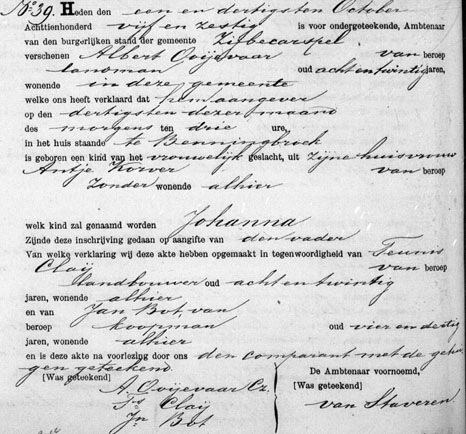 No. 39. Heden den een en dertigsten October
Achttienhonderd vijf en zestig is voor ondergeteekende, Ambtenaar
van den burgerlijken stand der gemeente Zijbecarspel
verschenen Albert Ooijevaar van beroep
landman oud acht en twintig jaren,
wonende in deze gemeente
welke ons heeft verklaard dat hem aangever
op den dertigsten dezer maand
des morgens ten drie ure,
in het huis staande te Benningbroek
is geboren een kind van het vrouwelijk geslacht, uit zijne huisvrouw
Antje Korver van beroep
zonder wonende alhier
welk kind zal genaamd worden Johanna
Zijnde deze inschrijving gedaan op aangifte van den vader
Van welke verklaring wij deze akte hebben opgemaakt in tegenwoordigheid van Teunis
Claij van beroep
landbouwer oud acht en twintig
jaren, wonende alhier
en van Jan Bot, van
beroep koopman oud vier en dertig
jaren, wonende alhier
en is deze akte na voorlezing door ons den comparant met de getui
gen geteekend.
[Was geteekend]
A. Ooijevaar Cz.
Ts Claij
Jn Bot
De Ambtenaar voornoemd,
[Was geteekend]
van Staveren